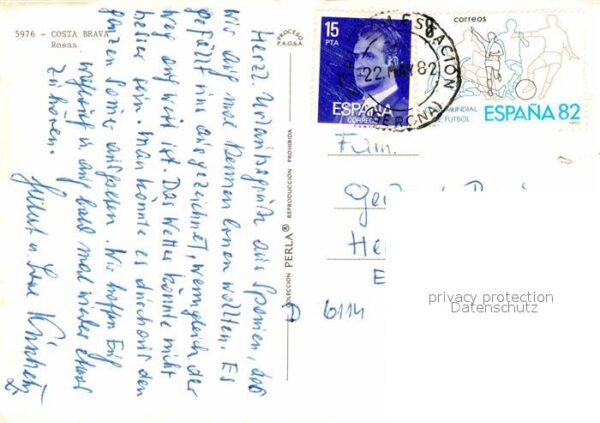 5976 - COSTA BRAVA
Rosas
Herzl. Urlaubsgrüße aus Spanien, das
wir auch mal kennen lernen wollten. Es
gefällt uns ausgezeichnet, wenngleich der
Weg auch weit ist. Das Wetter könnte nicht
besser sein. Man könnte es durchaus den
ganzen Sommer aushalten. Wir hoffen Euch
auch bald mal wieder etwas
zu hören.
COLECCION PERLA® REPRODUCCION PROHIBIDA
PROCERO
P.A.G.S.A.
15
PTA
ESPAÑA
CORREOS
22 MAY 82
GERONA
correos
MUNDIAL
DE FUTBOL
ESPAÑA 82
Fam.
D 6114
privacy protection
Datenschutz